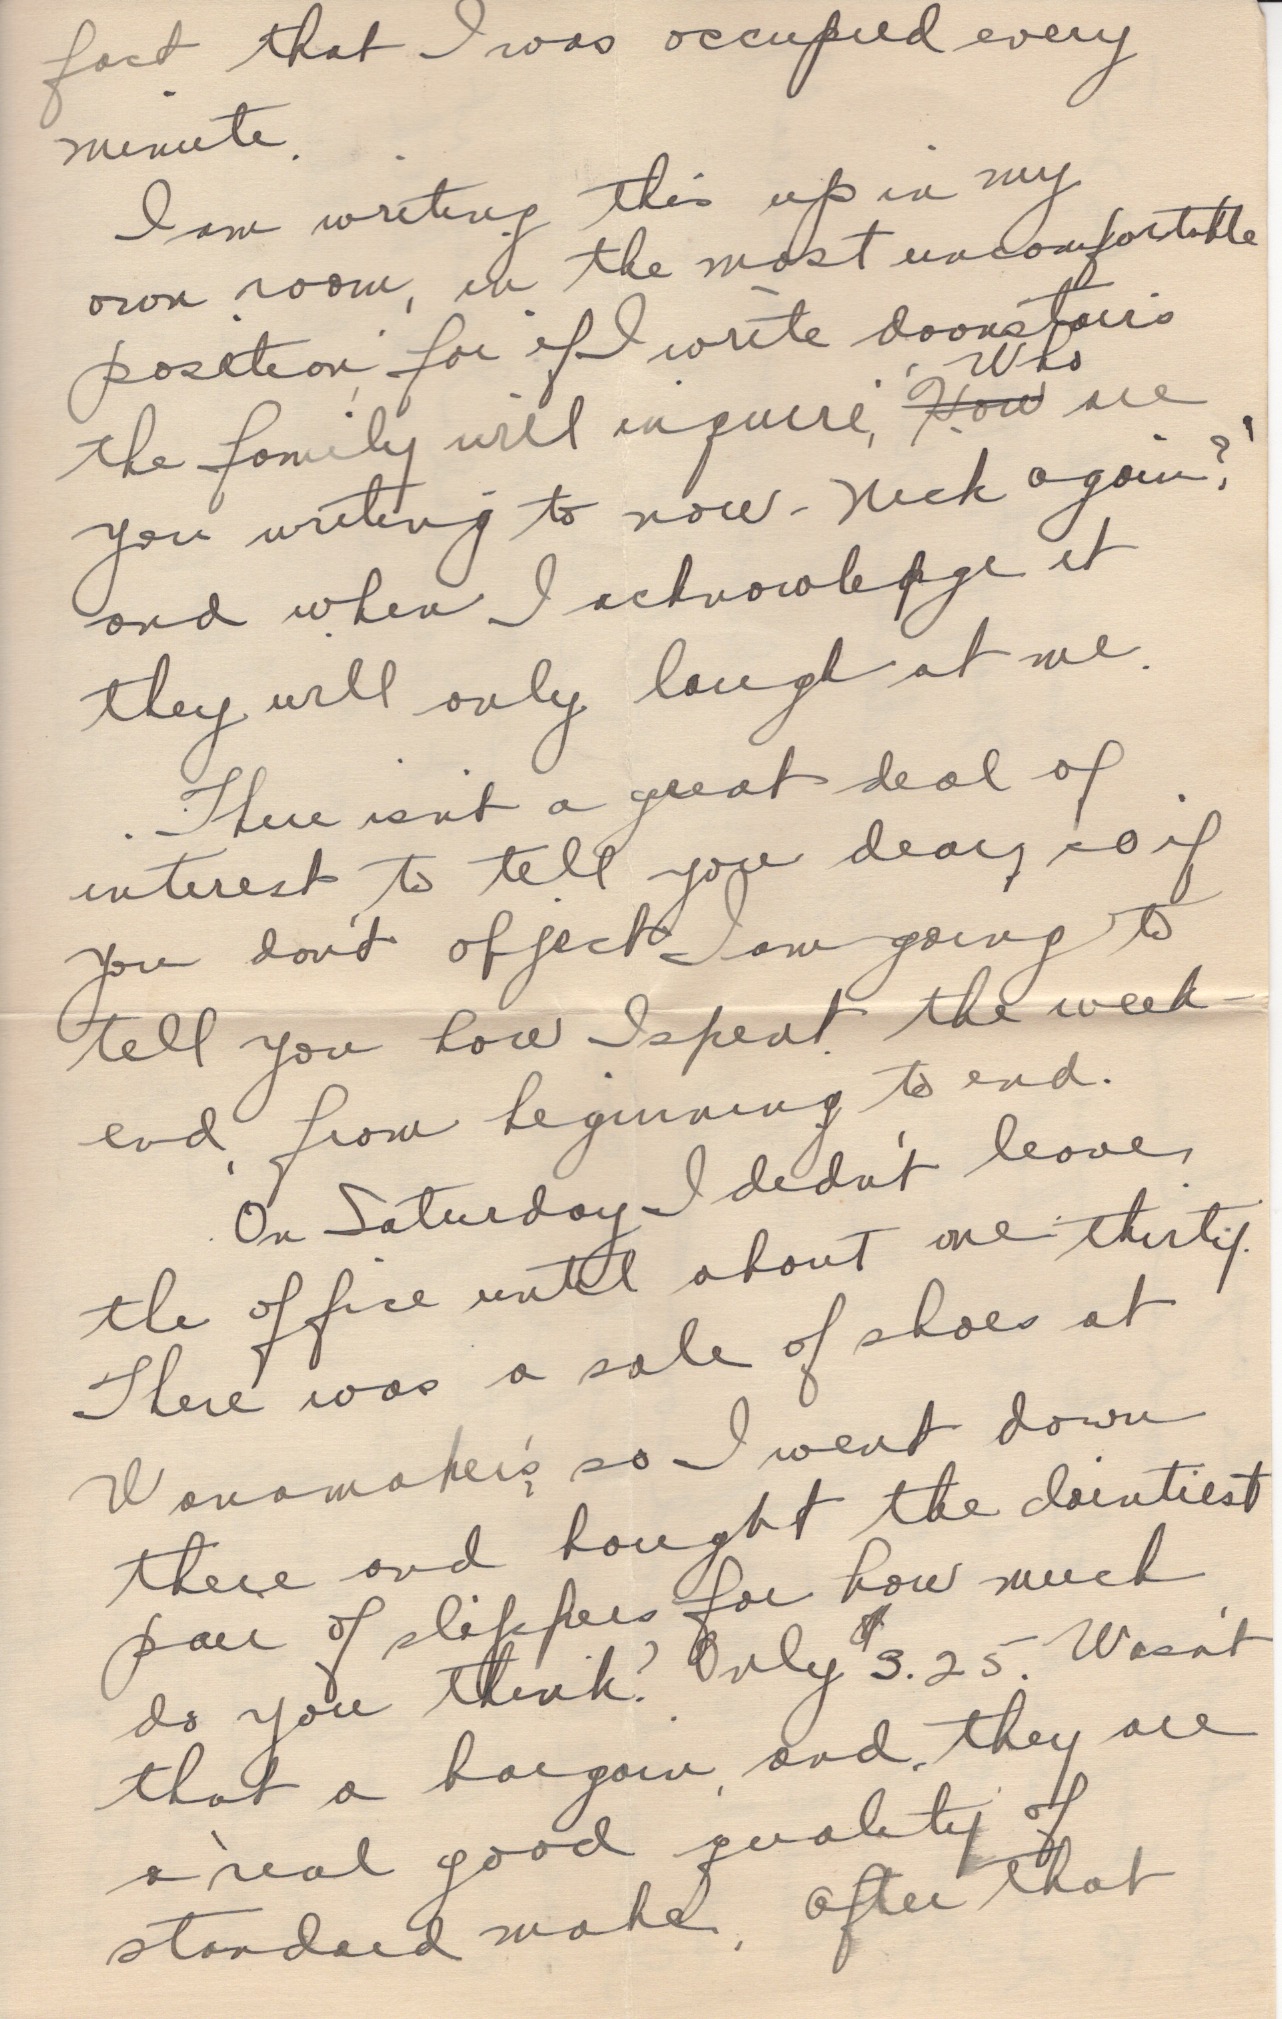 fact that I was occupied every
minute.
I am writing this up in my
own room, in the most uncomfortable
position, for if I write doonstairs
the family will inquire, "~~How~~ Who are
you writing to now - Nick again?"
and when I acknowledge it
they will only laugh at me.
There isn't a great deal of
interest to tell you dear, so if
you don't object I am going to
tell you how I spent the week-
end, from beginning to end.
On Saturday I didn't leave
the office until about one-thirty.
There was a sale of shoes at
Wanamaker's, so I went down
there and bought the daintiest
pair of slippers for how much
do you think? Only $3.25. Wasn't
that a bargain, and they are
a real good quality of
standard make. After that